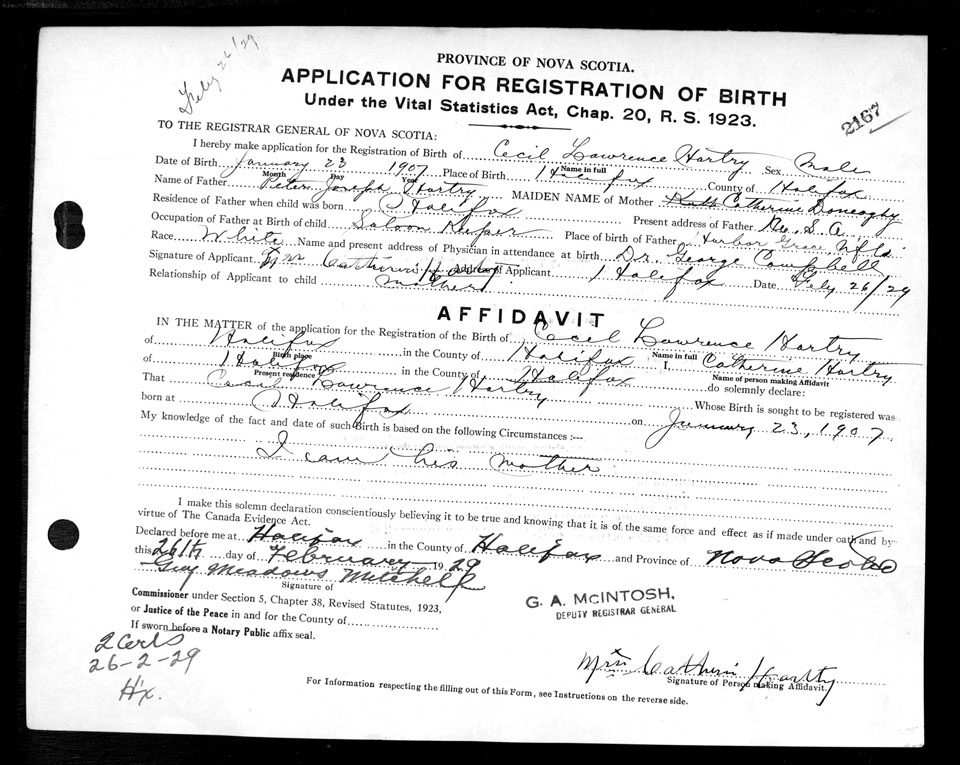 Feby 26/29
PROVINCE OF NOVA SCOTIA.
APPLICATION FOR REGISTRATION OF BIRTH
Under the Vital Statistics Act, Chap. 20, R. S. 1923.
2167
TO THE REGISTRAR GENERAL OF NOVA SCOTIA:
I hereby make application for the Registration of Birth of Cecil Lawrence Hartry Sex Male
Name in full
Date of Birth January 23 1907 Place of Birth Halifax County of Halifax
Month Day Year
Name of Father Peter Joseph Hartry MAIDEN NAME of Mother Ruth Catherine Doneaghy
Residence of Father when child was born Halifax Present address of Father U.S.A.
Occupation of Father at Birth of child Saloon Keeper Place of birth of Father Harbor Grace Nfld.
Race White Name and present address of Physician in attendance at birth Dr. George Campbell
Signature of Applicant Catherine Hartry Address of Applicant Halifax Date Feby 26/29
Relationship of Applicant to child mother
AFFIDAVIT
IN THE MATTER of the application for the Registration of the Birth of Cecil Lawrence Hartry
Name in full
of Halifax in the County of Halifax I, Catherine Hartry
Birth place
Name of person making Affidavit
of Halifax in the County of Halifax do solemnly declare:
Present residence
That Cecil Lawrence Hartry Whose Birth is sought to be registered was
born at Halifax on January 23, 1907
My knowledge of the fact and date of such Birth is based on the following Circumstances :—
I am his mother
I make this solemn declaration conscientiously believing it to be true and knowing that it is of the same force and effect as if made under oath and by
virtue of The Canada Evidence Act.
Declared before me at Halifax in the County of Halifax and Province of Nova Scotia
this 26th day of February 1929
Guy Meadows Mitchell
Signature of
Commissioner under Section 5, Chapter 38, Revised Statutes, 1923,
or Justice of the Peace in and for the County of
If sworn before a Notary Public affix seal.
G. A. McINTOSH,
DEPUTY REGISTRAR GENERAL
2 Certs
26-2-29
Hx.
Mrs Catherin Hartty
Signature of Person making Affidavit.
For Information respecting the filling out of this Form, see Instructions on the reverse side.